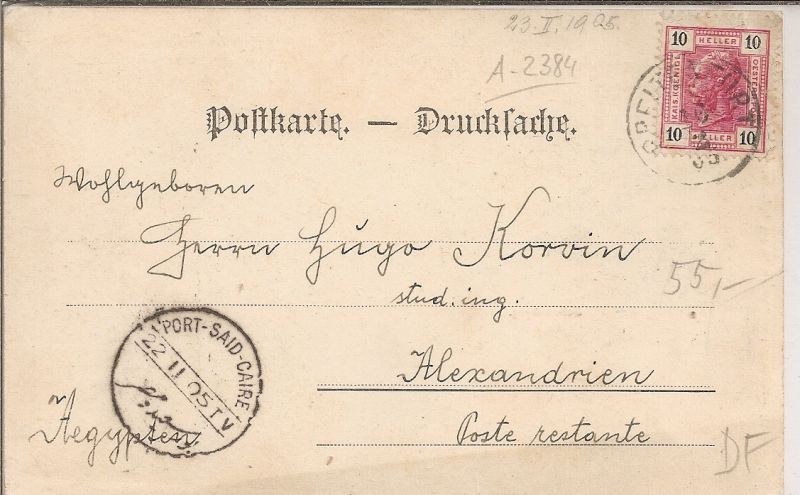 23. II. 1905.
A-2384
10 HELLER 10
KAIS. KOENIGL.
10 HELLER 10
Postkarte. — Drucksache.
Wohlgeboren
Herrn Hugo Korvin
stud. ing.
55,-
PORT-SAID-CAIRE
22 II 05 T V
Alexandrien
Aegypten
Poste restante
DF